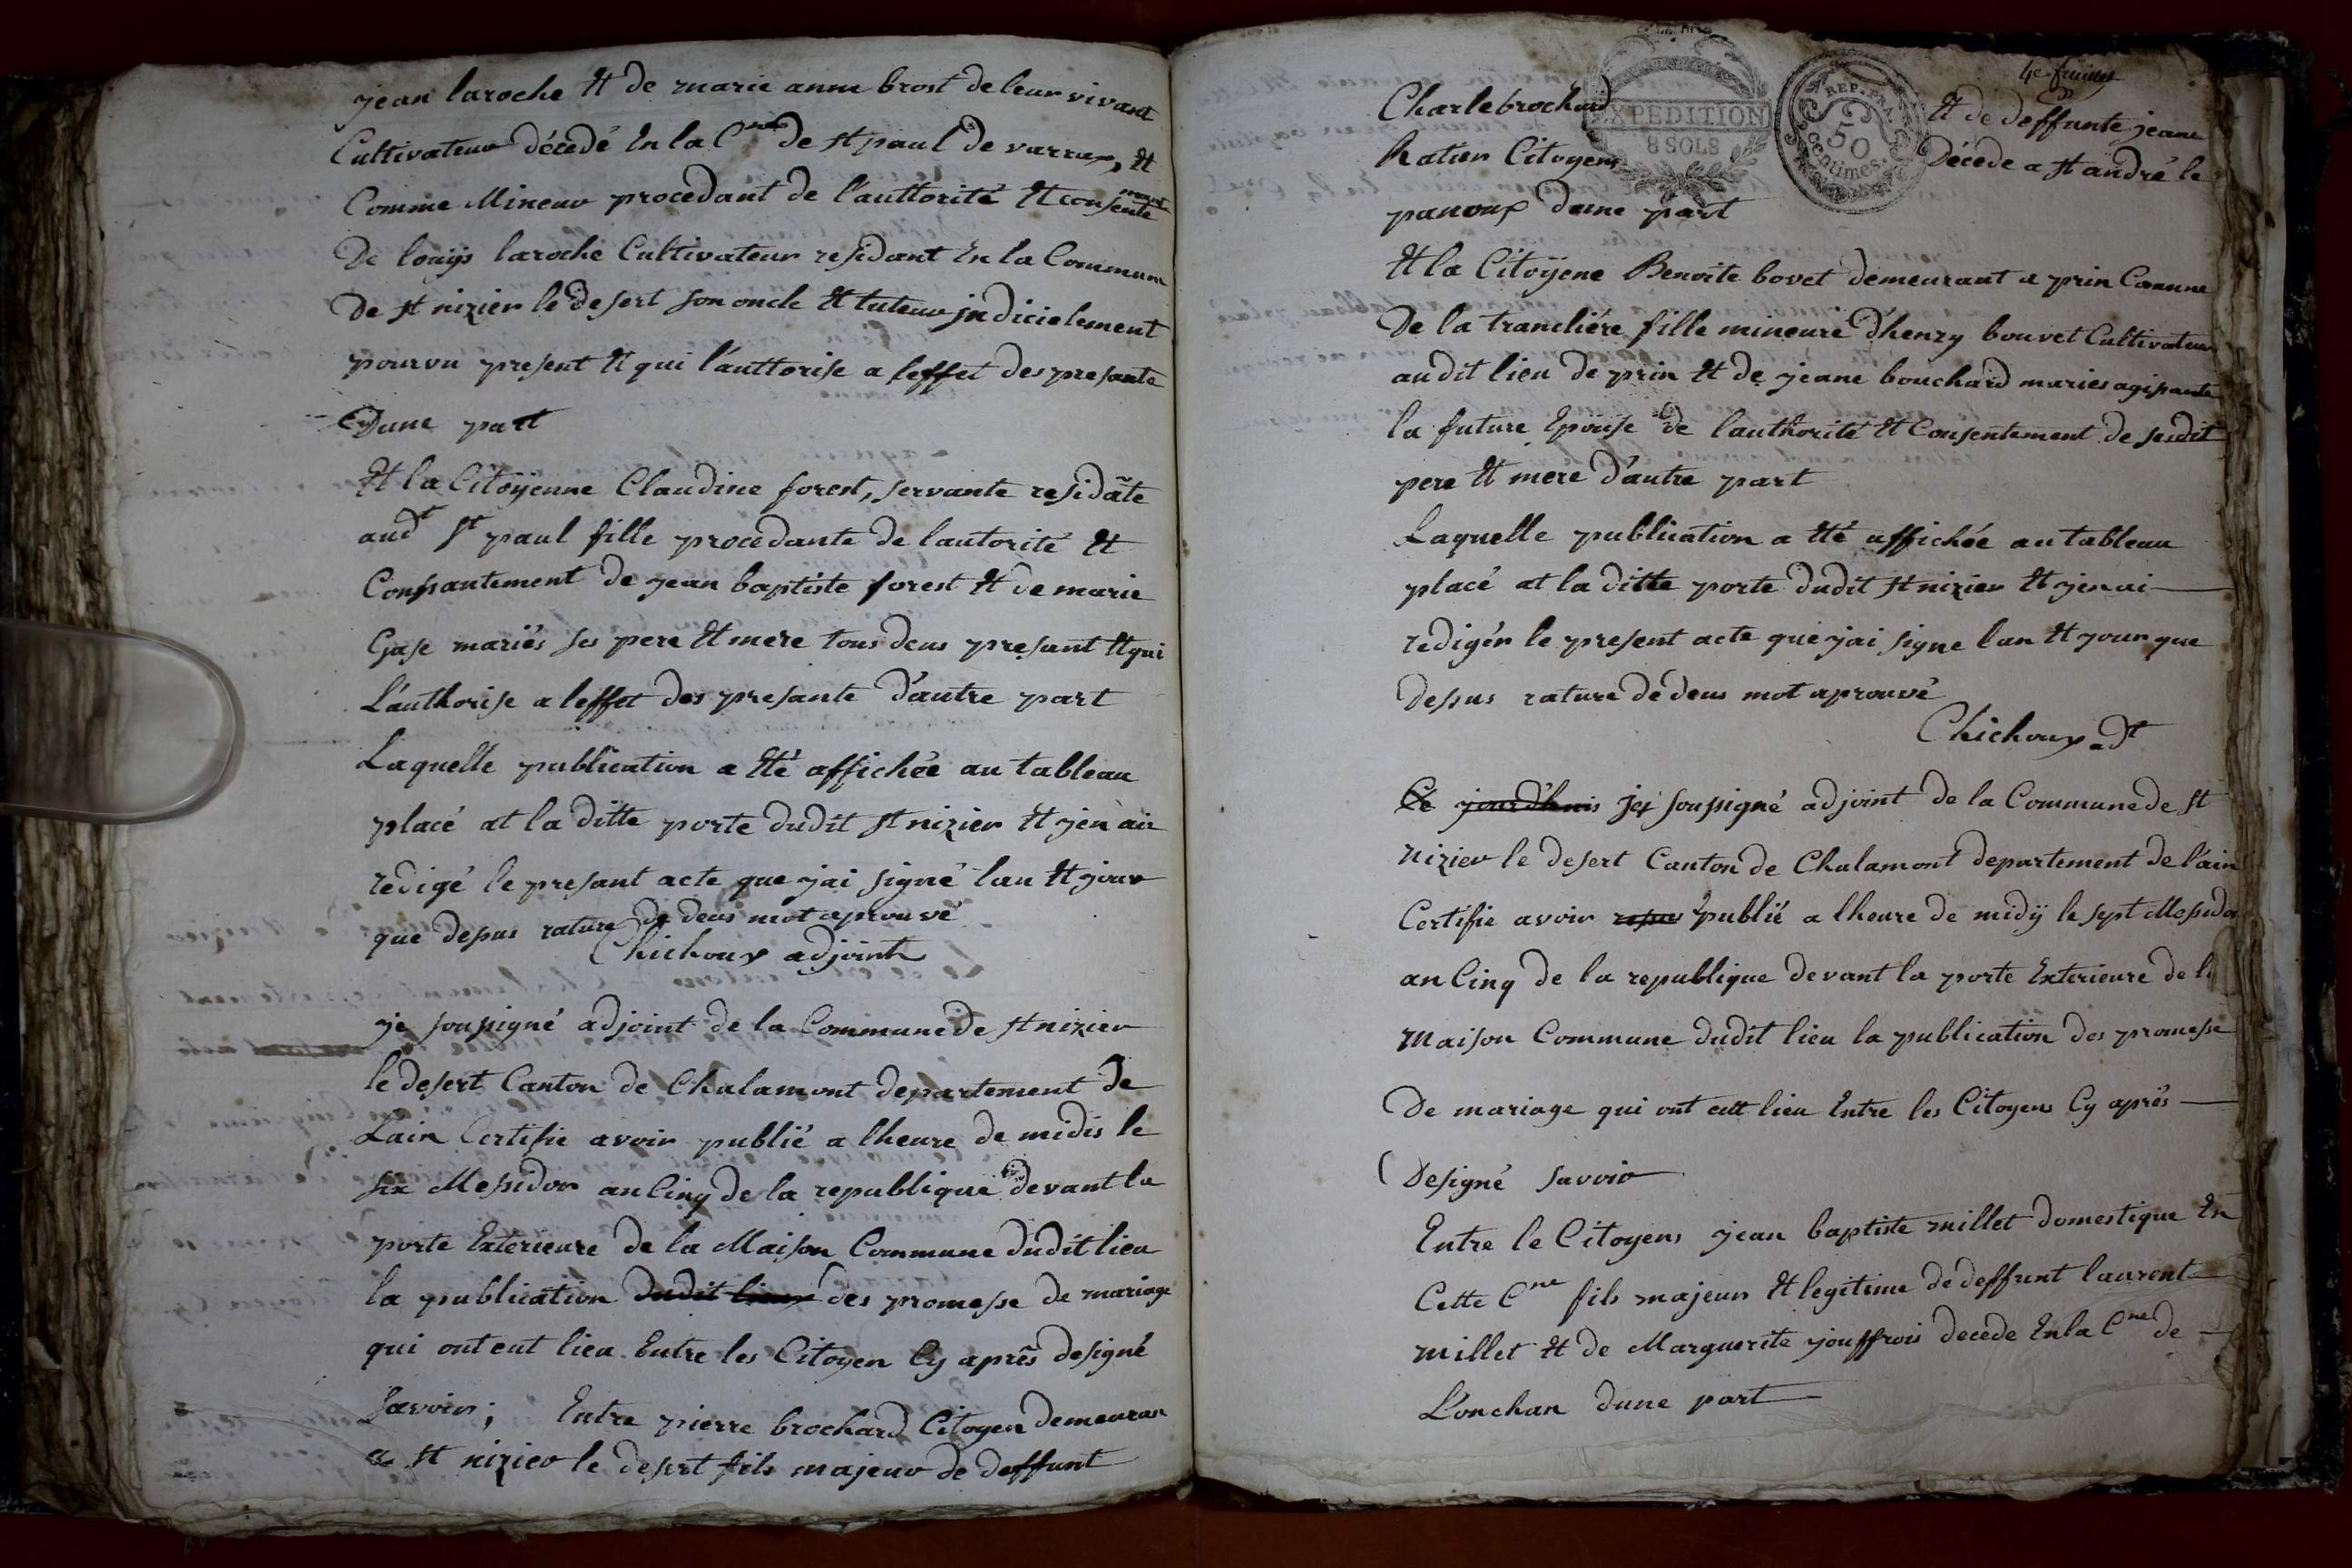 jean laroche Et de marie anne brost de leur vivant
Cultivateur décedé En la Cne de st paul de varrax, Et
Comme Mineur procedant de l'auttorité Et consente
ment
De louijs laroche Cultivateur residant En la Commune
De st nizier le desert son oncle Et tuteur judicielement
pourvu present Et qui l'auttorise a leffet des presante
Dune part
Et la Citoÿenne Claudine forest, servante residãte
audt St paul fille procedante de lautorité Et
Consantement de jean baptiste forest Et de marie
Gase mariés ses pere Et mere tous deus presant Et qui
L'authorise a leffet des presante d'autre part
Laquelle publication a Eté affichée au tableau
placé at la ditte porte dudit st nizier Et j'en ai
redigé le presant acte que j'ai signé lan Et jour
que depus rature de deus mot aprouvé
Chichoux adjoint
je soussigné adjoint de la Commune de st nizier
le desert Canton de Chalamont departement de
L'ain Certifie avoir publié a lheure de midis le
six Messidor an Cinq de la republique devant la
porte Exterieure de la Maison Commune dudit lieu
la publication dudit lieux des promesse de mariage
qui ont eut lieu Entre les Citoyen Cy après designé
Savoir; Entre pierre brochard Citoyen demeuran
a st nizier le desert fils majeur de deffunt
4e feuillet
Charle brochard Et de deffunte jeane
EXPEDITION
8 SOLS
REP. FRA.
50
centimes.
Ratier Citoyens Décede a st andré le
panoux dune part
Et la Citoÿene Benoite bovet demeurant a prin Comune
De la tranclière fille mineure d'henry bouvet Cultivateur
audit lieu de prin Et de jeane bouchard mariés agissante
la future Epouse de lauthorité Et Consentement de sesdit
pere Et mere d'autre part
Laquelle publication a Eté affichée au tableau
placé at la ditte porte dudit st nizier Et jen ai
redigér le present acte que j'ai signe lan Et jour que
dessus rature de deus mot aprouvé
Chichoux adt
Ce jourdhuis je soussigné adjoint de la Commune de st
nizier le desert Canton de Chalamont departement de l'ain
Certifie avoir publié a lheure de midÿ le sept Messidor
an Cinq de la republique devant la porte Exterieure de la
Maison Commune dudit lieu la publication des promesse
De mariage qui ont eutt lieu Entre les Citoyens Cy après
Designé savoir
Entre le Citoyens jean baptiste millet domestique En
Cette Cne fils majeur Et legitime de deffunt laurent
millet Et de Marguerite jouffrois decede En la Cne de
L'onchan dune part